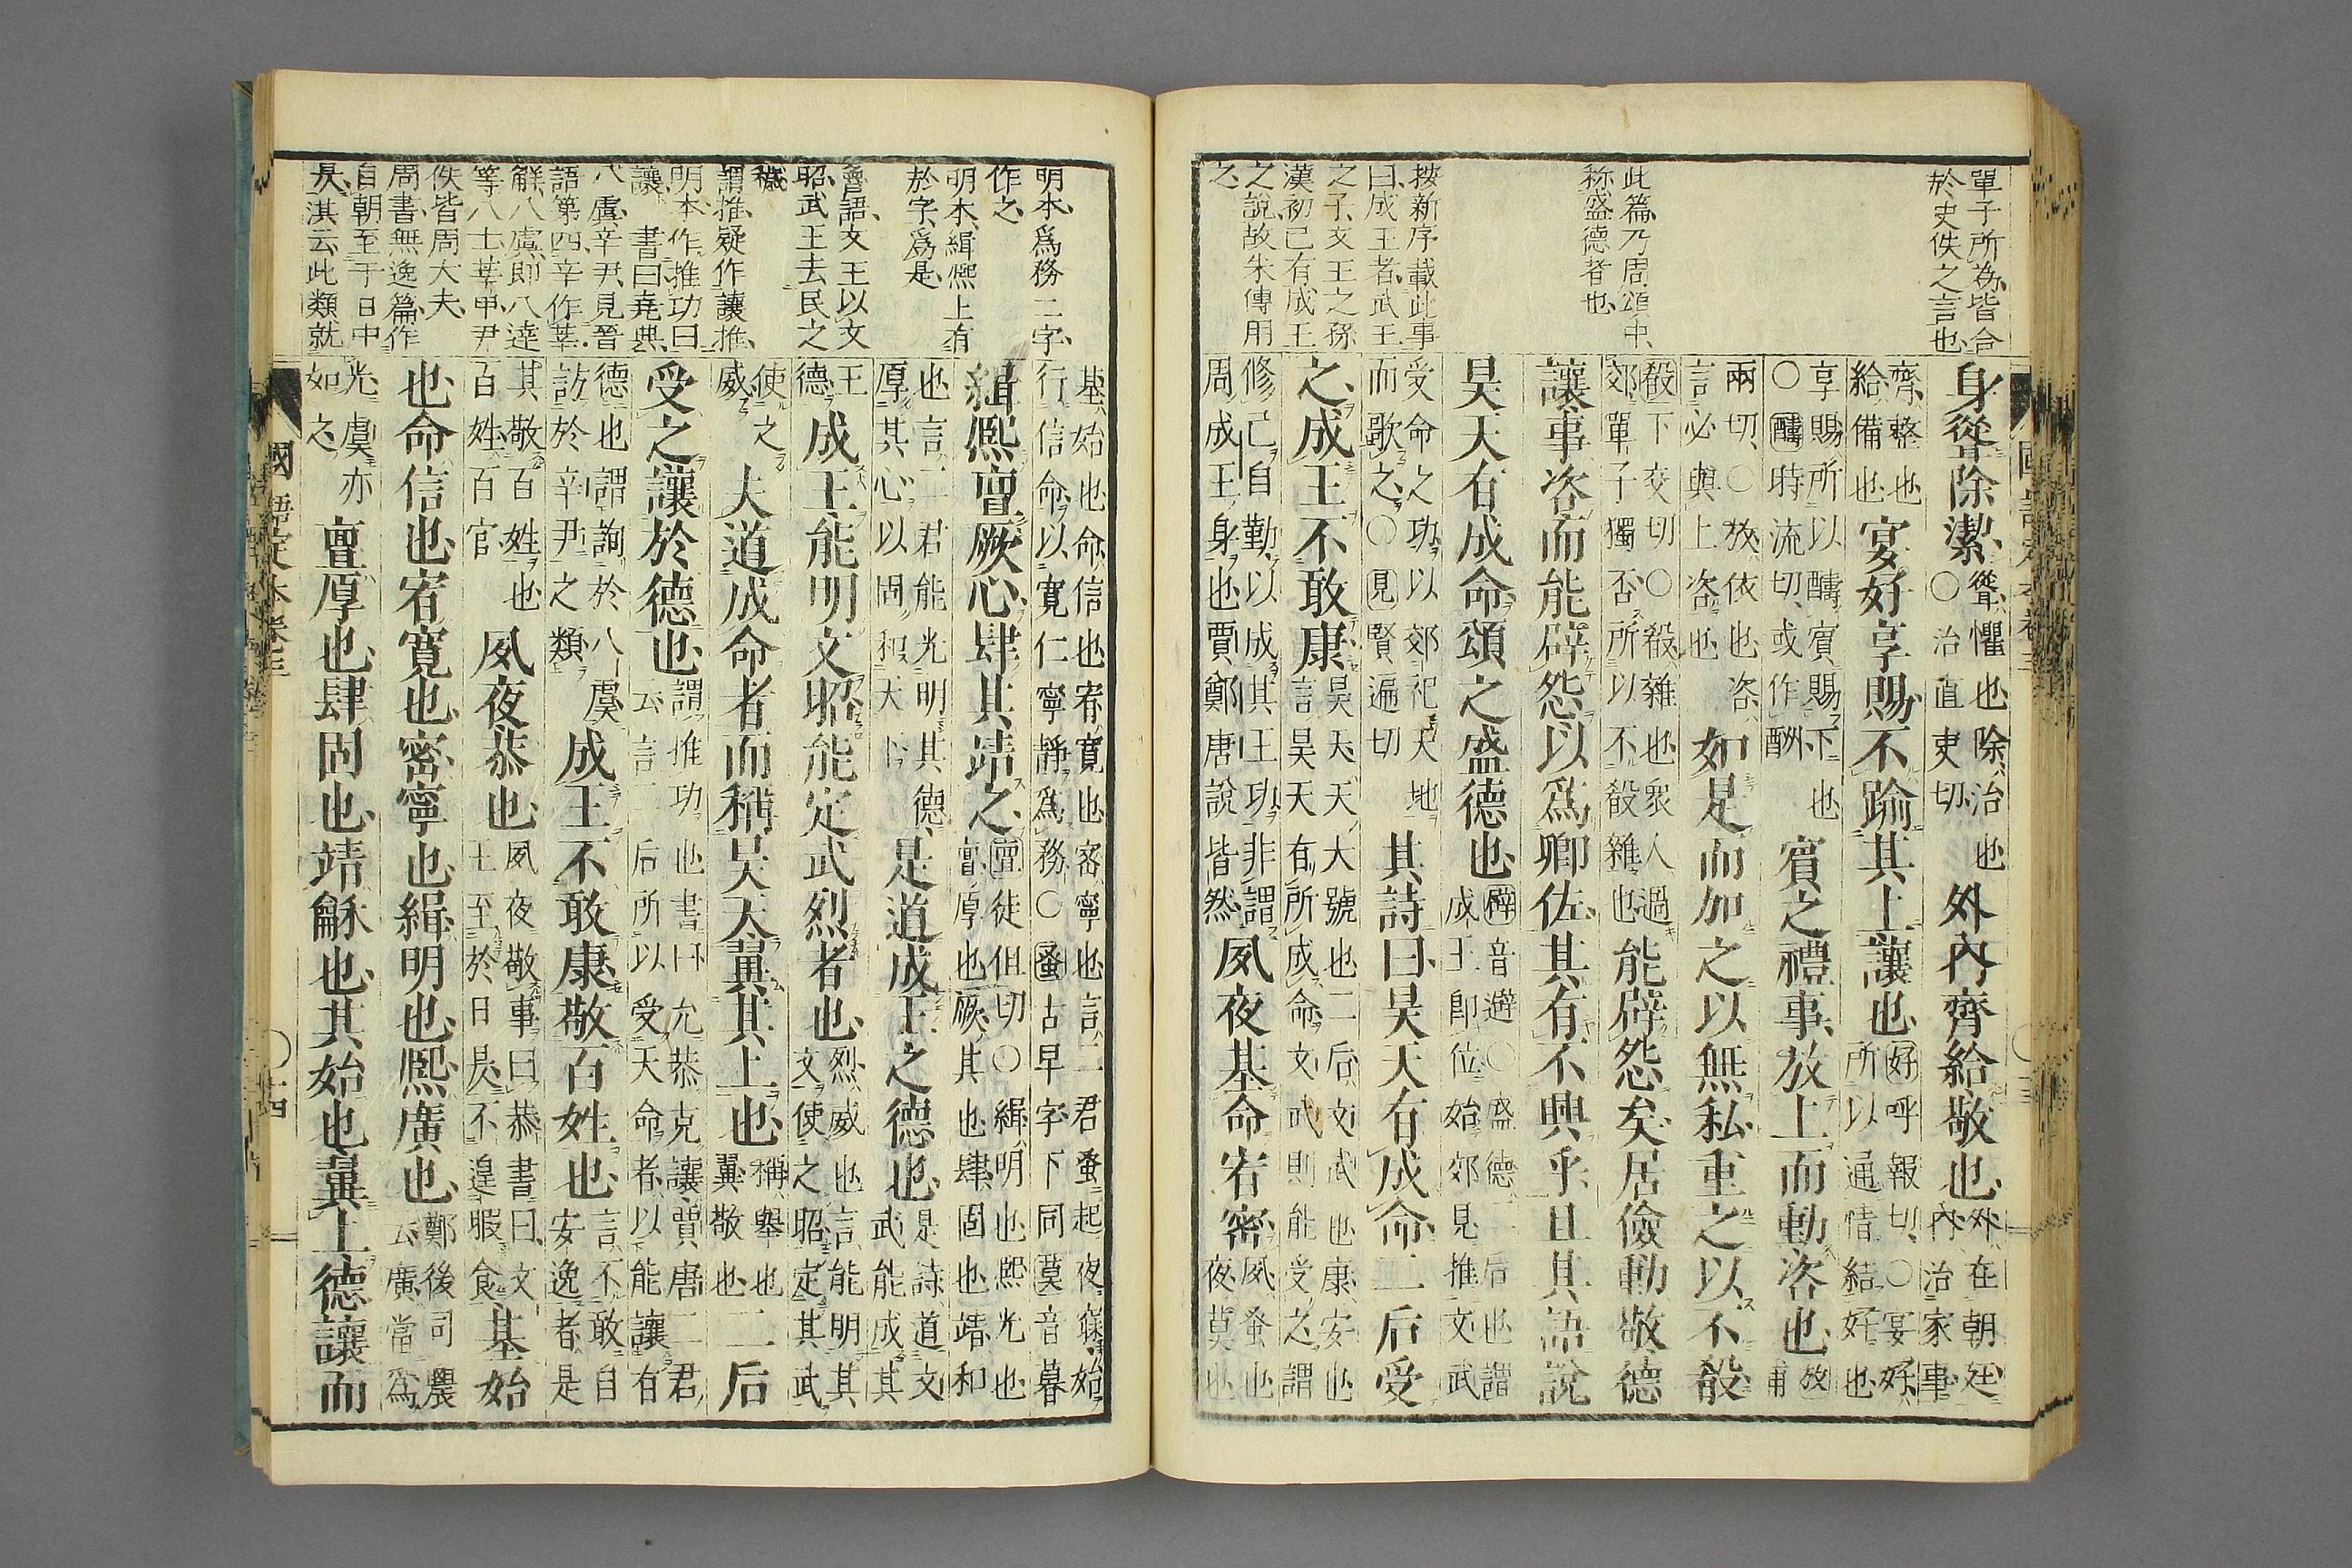 單子所爲皆合
於史佚之言也
此篇乃周頌中
稱盛德者也
按新序載此事
曰成王者武王
之子文王之孫
漢初已有成王
之說故朱傳用
之
身聳除潔聳懼也除治也
○治直吏切外內齊給敬也外在朝廷
內治家事
齊整也
給備也宴好享賜不踰其上讓也好呼報切○宴好
所以通情結好也
享賜所以醻賓賜下也
○醻時流切或作酬賓之禮事放上而動咨也放
甫
兩切○放依也咨
言必與上咨也如是而加之以無私重之以不殽
殽下交切○殽雜也衆人過
郊單子獨否所以不殽雜也能辟怨矣居儉動敬德
讓事咨而能辟怨以爲卿佐其有不興乎且其語說
昊天有成命頌之盛德也辟音避○盛德二后也謂
成王卽位始郊見推文武
受命之功以郊祀天地
而歌之○見賢遍切其詩曰昊天有成命二后受
之成王不敢康昊天天大號也二后文武也康安也
言昊天有所成命文武則能受之謂
修己自勤以成其王功非謂
周成王身也賈鄭唐說皆然夙夜基命宥密夙蚤也
夜莫也
明本爲務二字
作之
明本緝熙上有
於字爲是
魯語文王以文
昭武王去民之
穢
謂推疑作讓推
明本作推功曰
讓書曰堯典
八虞辛尹見晉
語第四辛作莘
解八虞卽八達
等八士莘甲尹
佚皆周大夫
周書無逸篇作
自朝至于日中
昃淇云此類就
基始也命信也宥寬也密寧也言二君蚤起夜寐始
行信命以寬仁寧靜爲務○蚤古早字下同莫音暮
緝熙亶厥心肆其靖之亶徒但切○緝明也熙光也
亶厚也厥其也肆固也靖和
也言二君能光明其德
厚其心以固和天下是道成王之德也是詩道文
武能成其
王
德成王能明文昭能定武烈者也烈威也言能明其
文使之昭定其武
使之
威夫道成命者而稱昊天翼其上也稱舉也
翼敬也二后
受之讓於德也謂推功也書曰允恭克讓賈唐二君
云言二后所以受天命者以能讓有
德也謂詢於八虞
訪於辛尹之類成王不敢康敬百姓也言不敢自
安逸者是
其敬百姓也
百姓百官夙夜恭也夙夜敬事曰恭書曰文
王至於日昃不遑暇食基始
也命信也宥寬也密寧也緝明也熙廣也鄭後司農
云廣當爲
光虞亦
如之亶厚也肆固也靖龢也其始也翼上德讓而
國語定本卷三
○十四